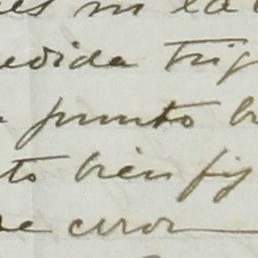 es ni la
edida trig
punto b
to bien fij
ce error